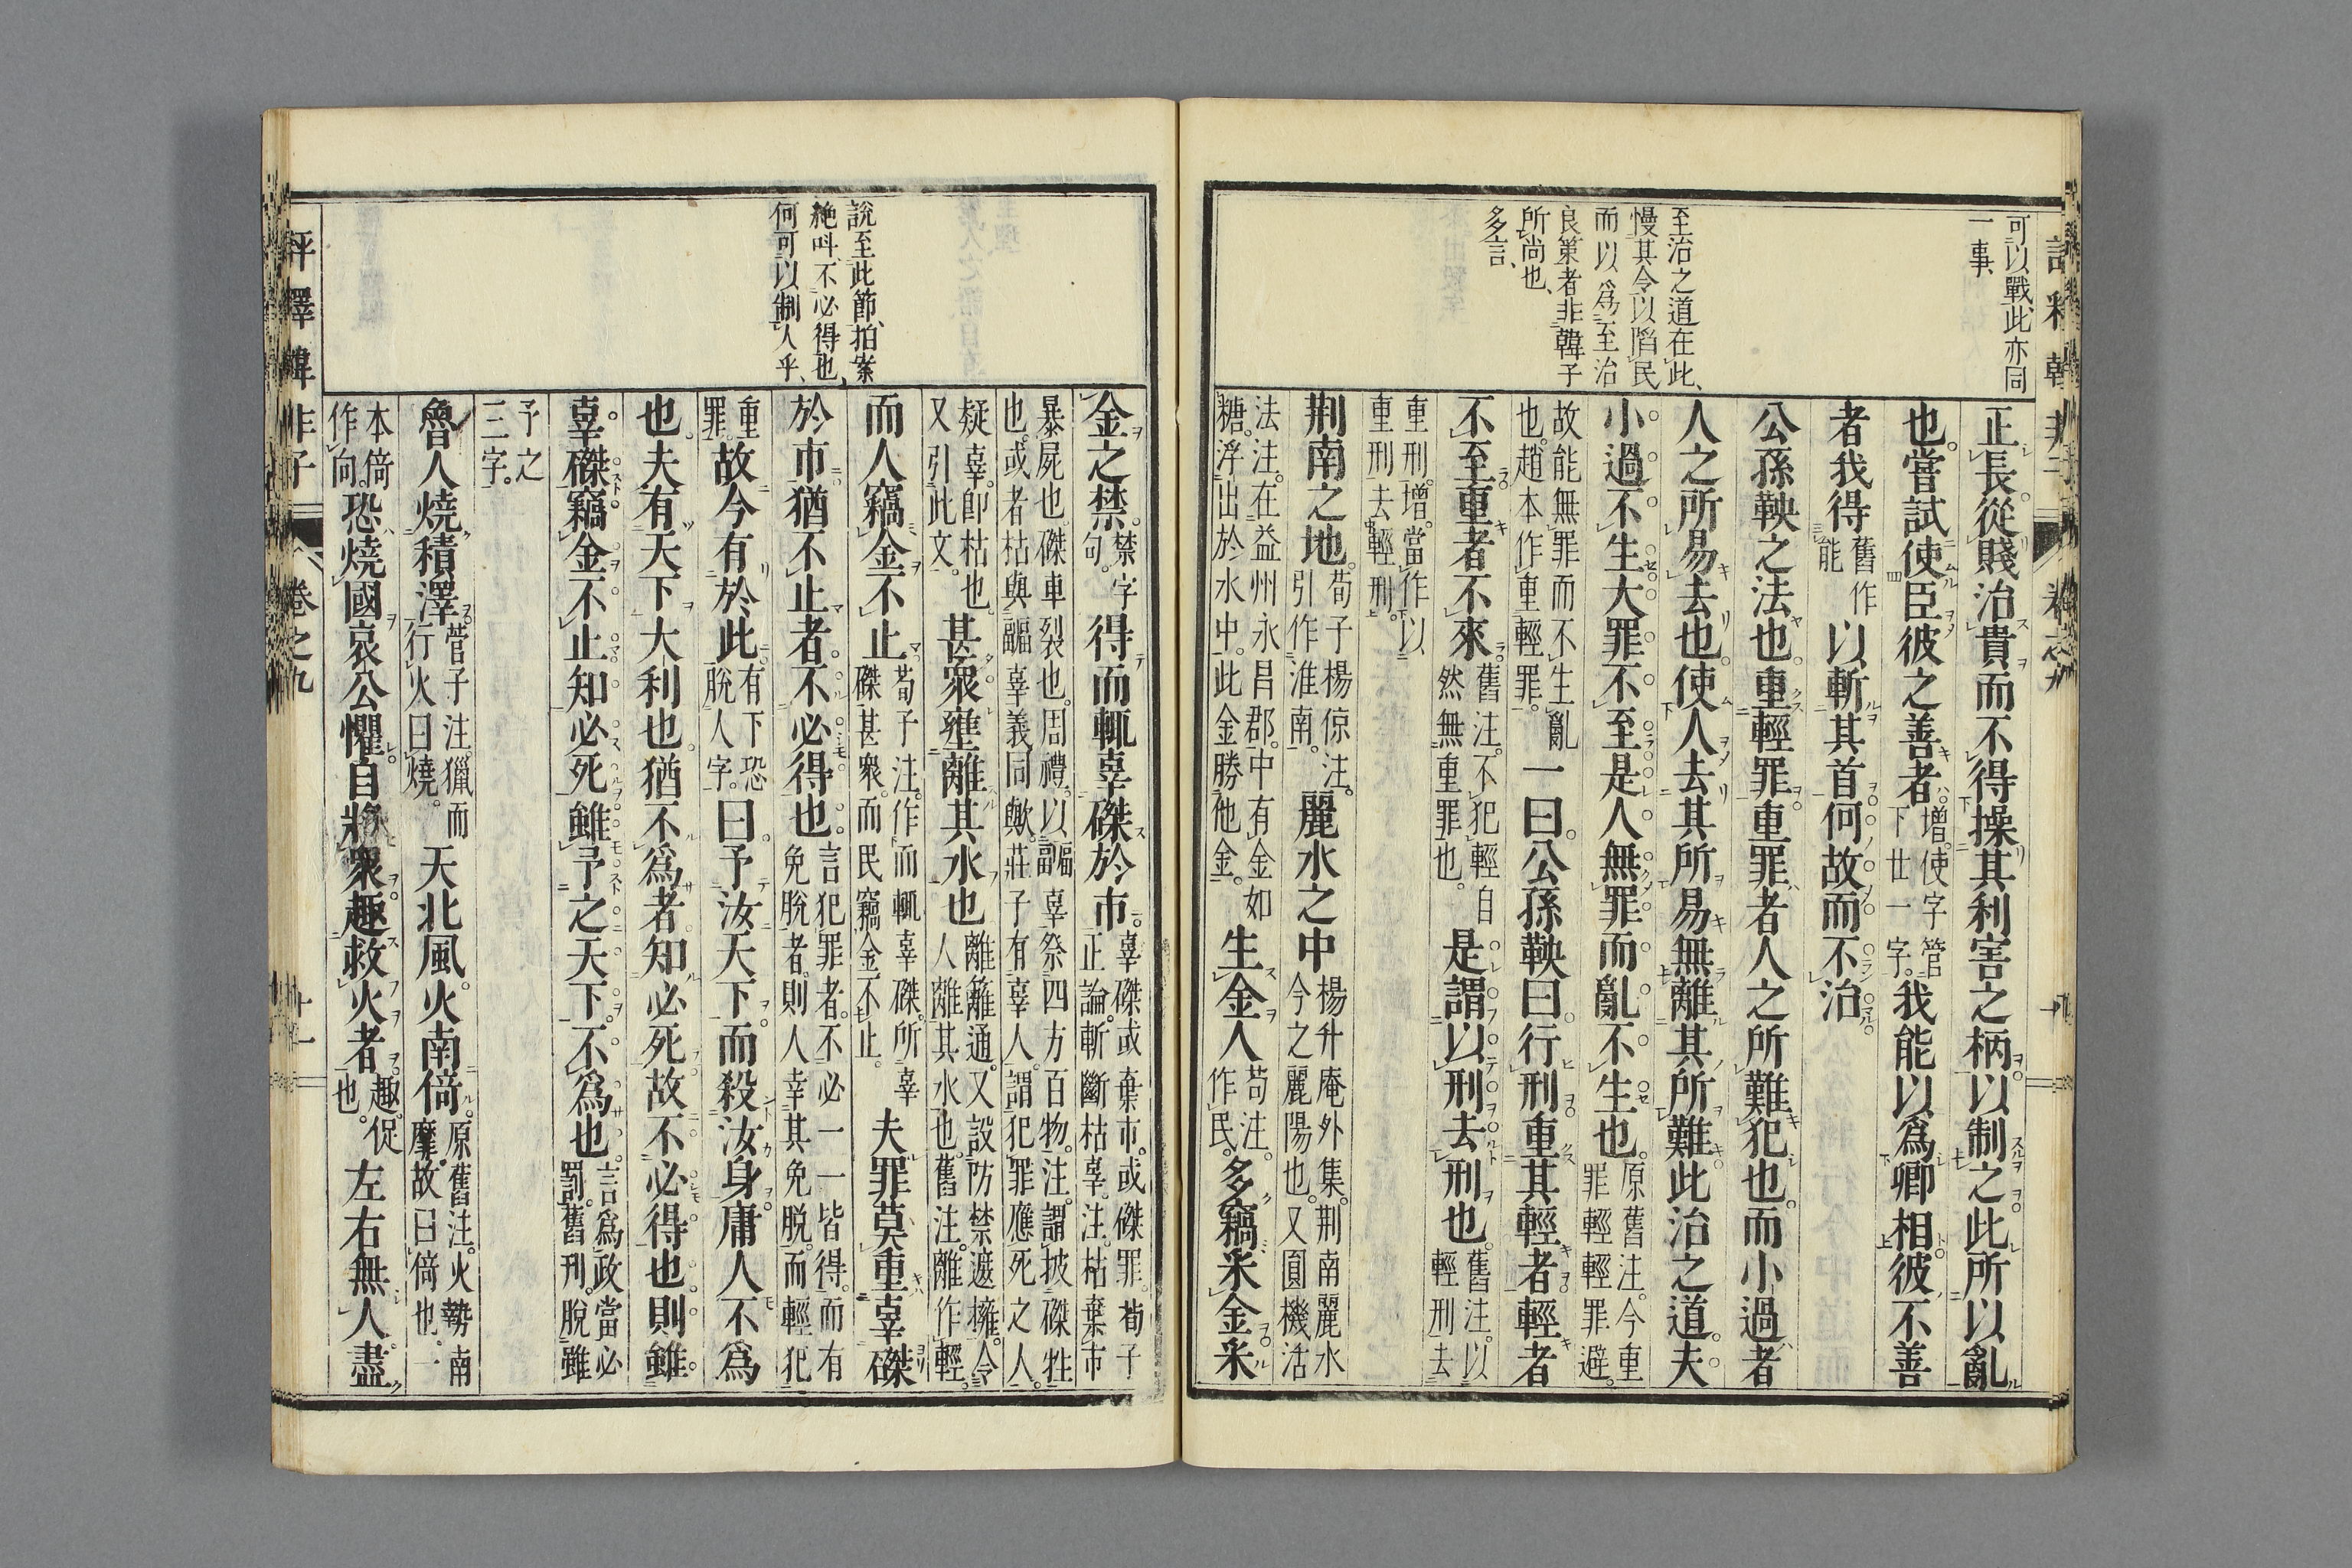 可以戰此亦同
一事、
至治之道在此、
慢其令以陷民
而以爲至治
良策者非韓子
所尚也、
多言、
正長從賤治貴而不得操其利害之柄以制之此所以亂
也嘗試使臣彼之善者增使字管下世一字我能以爲卿相彼不善
者我得舊作能以斬其首何故而不治
公孫鞅之法也重輕罪重罪者人之所難犯也而小過者
人之所易去也使人去其所易無離其所難此治之道夫
小過不生大罪不至是人無罪而亂不生也原舊注今重罪輕輕罪避
故能無罪而不生亂也趙本作重輕罪一曰公孫鞅曰行刑重其輕者輕者
不至重者不來舊注不犯輕自然無重罪也是謂以刑去刑也舊注以輕刑去
重刑增當作以重刑去輕刑
荆南之地荀子楊倞注引作淮南麗水之中楊升庵外集荆南麗水今之麗陽也又圓機活
法注在益州永昌郡中有金如糖浮出於水中此金勝他金生金人荀注作民多竊采金采
說至此節拍案
絶呌、不必得也、
何可以制人乎、
金之禁禁字句得而輒辜磔於市辜磔或棄市或磔罪荀子正論斬斷枯辜注枯棄市
暴屍也磔車裂也周禮以疈辜祭四方百物注謂披磔牲也或者枯與疈辜義同歟莊子有辜人謂犯罪應死之人
疑辜卽枯也又引此文甚衆壅離其水也離籬通又設防禁遮擁令人離其水也舊注離作輕
而人竊金不止荀子注作而輒辜磔所辜磔甚衆而民竊金不止夫罪莫重辜磔
於市猶不止者不必得也言犯罪者不必一一皆得而有免脫者則人幸其免脫而輕犯
重罪故今有於此有下恐脫人字曰予汝天下而殺汝身庸人不爲
也夫有天下大利也猶不爲者知必死故不必得也則雖
辜磔竊金不止知必死雖予之天下不爲也言爲政當必罰舊刑脫雖
予之三字
魯人燒積澤菅子注獵而行火曰燒天北風火南倚原舊注火勢南摩故曰倚也一
本倚作向恐燒國哀公懼自將衆趣救火者趣促也左右無人盡
評釋韓非子
卷之九
十一